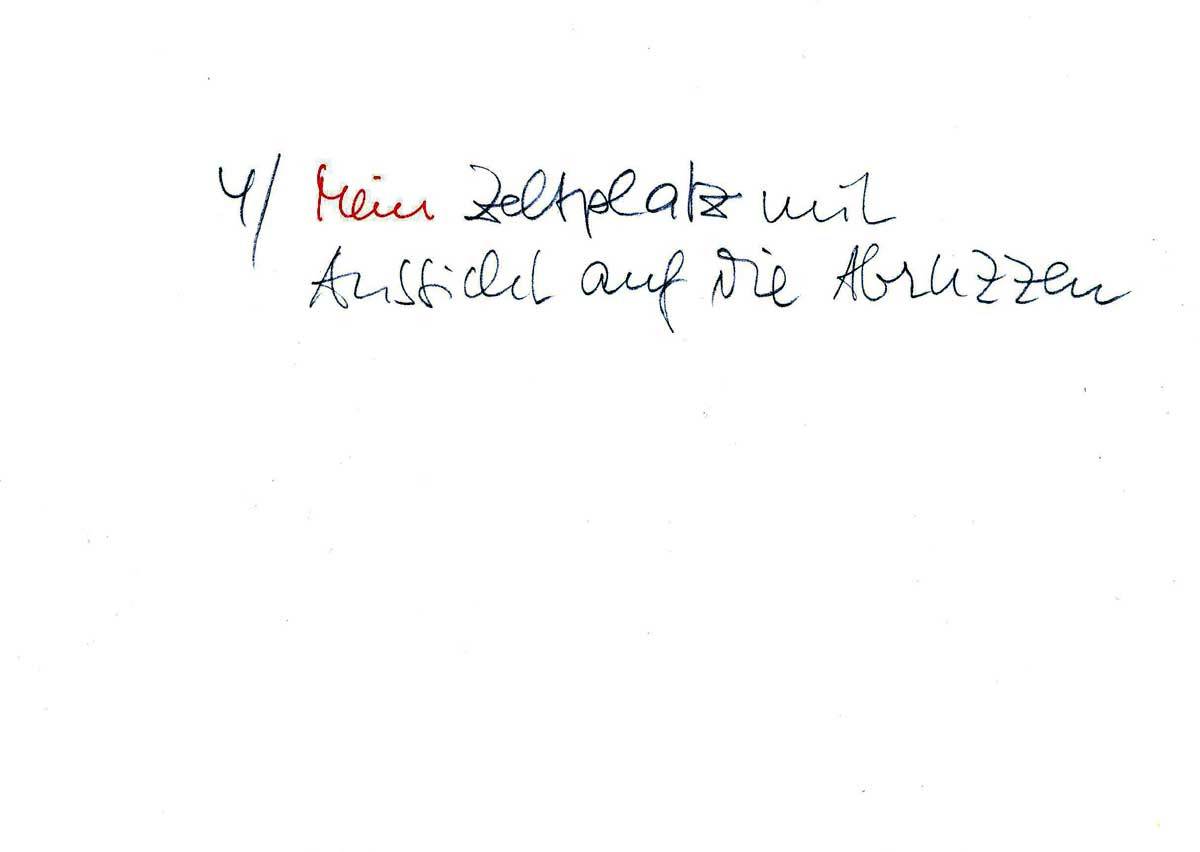 4/ Mein Zeltplatz mit
Aussicht auf die Abruzzen